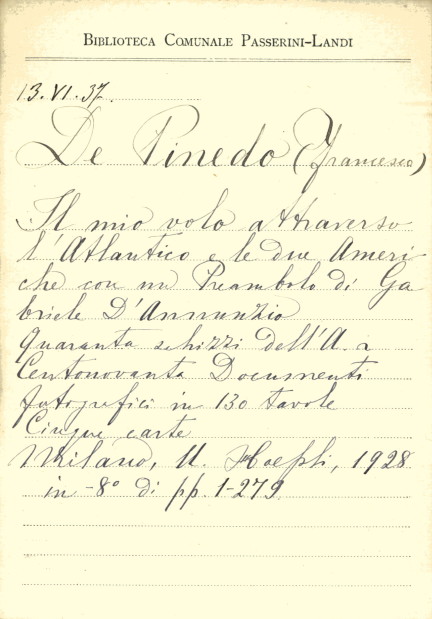 BIBLIOTECA COMUNALE PASSERINI-LANDI
13.VI.37.
De Pinedo (Francesco)
Il mio volo attraverso
l'Atlantico e le due Ameri
che con un Preambolo di Ga
briele D'Annunzio
Quaranta schizzi dell'A. e
Centonovanta Documenti
fotografici in 130 tavole
Cinque carte
Milano, U. Hoepli, 1928
in -8° di pp. 1-279